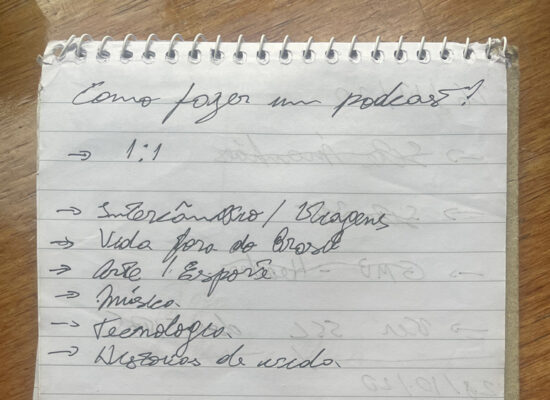 Como fazer um podcast?
→ 1:1
→ Intercâmbio / Viagens
→ Vida fora do Brasil
→ Arte / Esporte
→ Música
→ Tecnologia
→ Histórias de vida